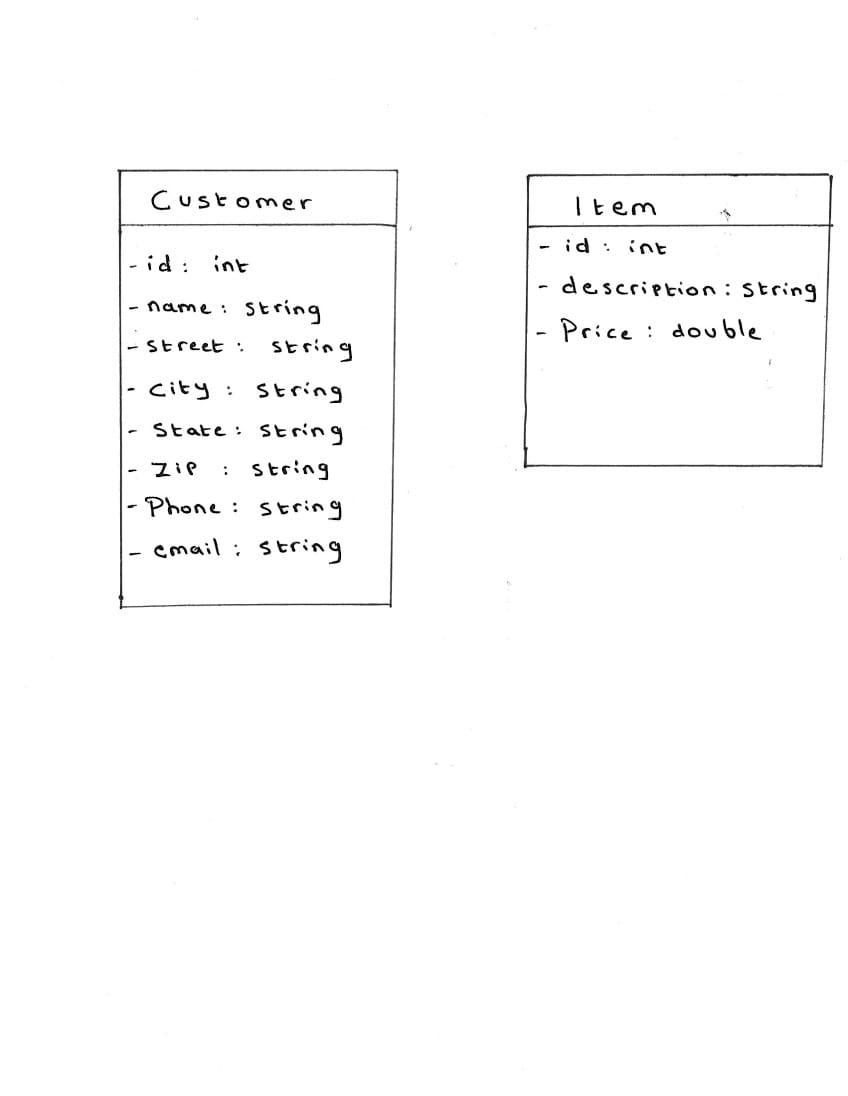 Customer
- id : int
- name : string
- street : string
- city : string
- State : string
- Zip : string
- Phone : string
- email : string
Item
- id : int
- description : string
- Price : double